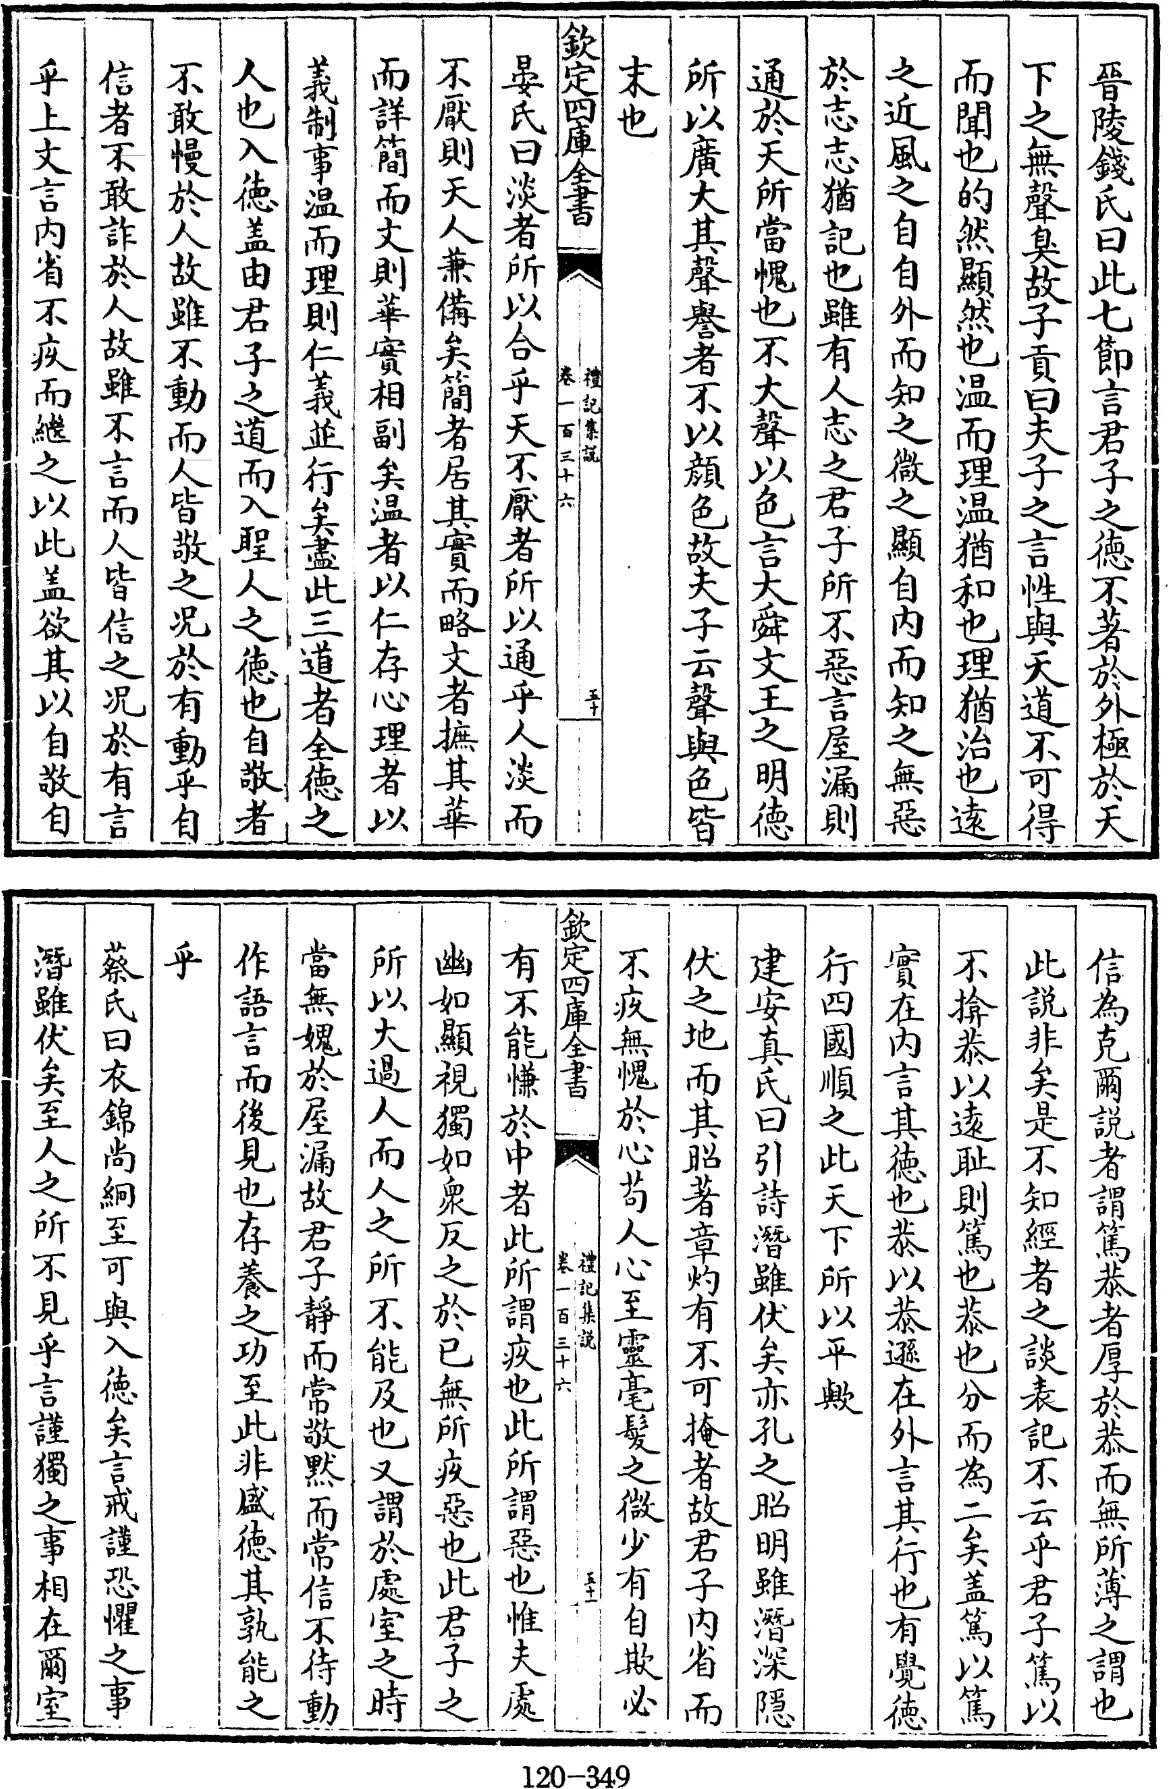 晉陵錢氏曰此七節言君子之德不著於外極於天
下之無聲臭故子貢曰夫子之言性與天道不可得
而聞也的然顯然也温而理温猶和也理猶治也遠
之近風之自自外而知之微之顯自内而知之無惡
於志志猶記也雖有人志之君子所不惡言屋漏則
通於天所當愧也不大聲以色言大舜文王之明德
所以廣大其聲譽者不以顔色故夫子云聲與色皆
末也
欽定四庫全書
禮記集説
卷一百三十六
五十
晏氏曰淡者所以合乎天不厭者所以通乎人淡而
不厭則天人兼備矣簡者居其實而略文者摭其華
而詳簡而文則華實相副矣温者以仁存心理者以
義制事温而理則仁義並行矣盡此三道者全德之
人也入德盖由君子之道而入聖人之德也自敬者
不敢慢於人故雖不動而人皆敬之况於有動乎自
信者不敢詐於人故雖不言而人皆信之况於有言
乎上文言内省不疚而繼之以此盖欲其以自敬自
信為克爾説者謂篤恭者厚於恭而無所薄之謂也
此説非矣是不知經者之談表記不云乎君子篤以
不揜恭以遠耻則篤也恭也分而為二矣盖篤以篤
實在内言其德也恭以恭遜在外言其行也有覺德
行四國順之此天下所以平歟
建安真氏曰引詩潛雖伏矣亦孔之昭明雖潛深隱
伏之地而其昭著章灼有不可掩者故君子内省而
不疚無愧於心苟人心至靈毫髮之微少有自欺必
欽定四庫全書
禮記集説
卷一百三十六
五十一
有不能慊於中者此所謂疚也此所謂惡也惟夫處
幽如顯視獨如衆反之於已無所疚惡也此君子之
所以大過人而人之所不能及也又謂於處室之時
當無媿於屋漏故君子靜而常敬默而常信不待動
作語言而後見也存養之功至此非盛德其孰能之
乎
蔡氏曰衣錦尚絅至可與入德矣言戒謹恐懼之事
潛雖伏矣至人之所不見乎言謹獨之事相在爾室
120-349